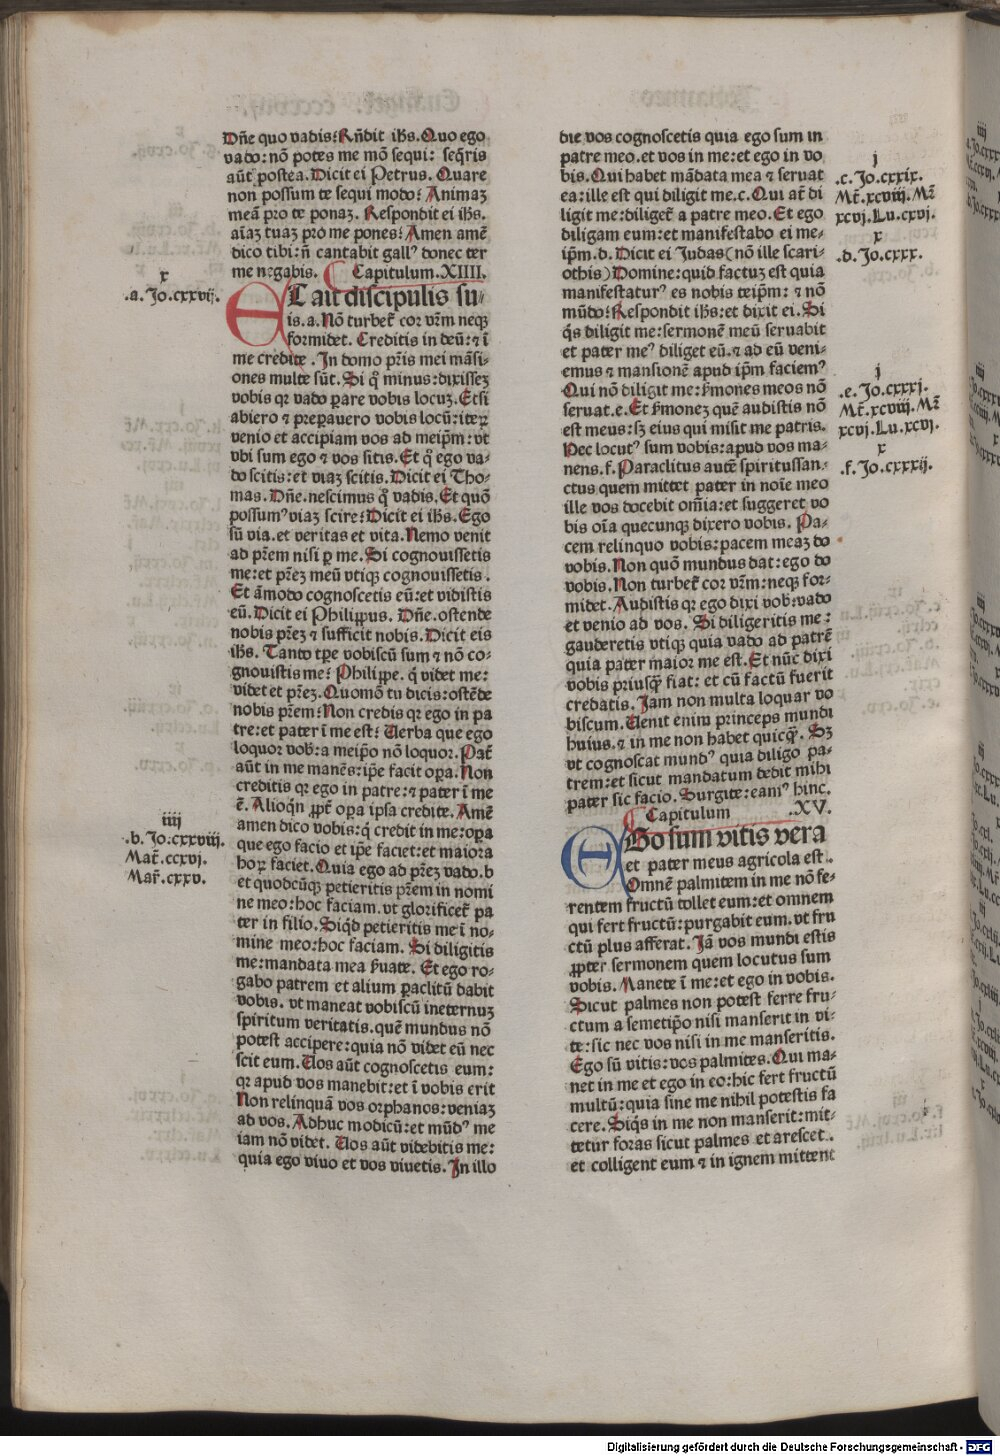 Dñe quo vadis? Rñdit ihs. Quo ego
vado: nõ potes me mõ sequi: seq̃ris
aũt postea. Dicit ei Petrus. Quare
non possum te sequi modo? Animaz
meã pro te ponaz. Respondit ei ihs.
aĩaz tuaz pro me pones? Amen amẽ
dico tibi: ñ cantabit gallꝰ donec ter
me negabis. Capitulum. XIIII.
ET ait discipulis su-
is. a. Nõ turbet̃ cor vr̃m neqꝫ
formidet. Creditis in deũ: ⁊ ĩ
me credite. In domo pr̃is mei mãsi-
ones multe sũt. Si qͦ minus: dixissez
vobis qꝛ vado ꝑare vobis locuz. Et si
abiero ⁊ preꝑauero vobis locũ: iteꝝ
venio et accipiam vos ad meip̃m: vt
vbi sum ego ⁊ vos sitis. Et qͦ ego va-
do scitis: et viaz scitis. Dicit ei Tho-
mas. Dñe. nescimus qͦ vadis. Et quõ
possumꝰ viaz scire? Dicit ei ihs. Ego
sũ via. et veritas et vita. Nemo venit
ad pr̃em nisi ꝑ me. Si cognouissetis
me: et pr̃ez meũ vtiqꝫ cognouissetis.
Et ãmodo cognoscetis eũ: et vidistis
eũ. Dicit ei Philippus. Dñe. ostende
nobis pr̃ez ⁊ sufficit nobis. Dicit eis
ihs. Tanto tꝑe vobiscũ sum ⁊ nõ co-
gnouistis me? Philippe. q̃ videt me:
videt et pr̃ez. Quomõ tu dicis: ostẽde
nobis pr̃em? Non credis qꝛ ego in pa
tre: et pater ĩ me est? Uerba que ego
loquor vob̃: a meip̃o nõ loquor. Pat̃
aũt in me manẽs: ip̃e facit oꝑa. Non
creditis qꝛ ego in patre: ⁊ pater ĩ me
ẽ. Alioq̃n ꝓpt̃ oꝑa ipsa credite. Amẽ
amen dico vobis: q̃ credit in me: oꝑa
que ego facio et ip̃e faciet: et maiora
hoꝝ faciet. Quia ego ad pr̃ez vado. b
et quodcũqꝫ petieritis pr̃em in nomi
ne meo: hoc faciam. vt glorificet̃ pa
ter in filio. Siq̃d petieritis me ĩ no-
mine meo: hoc faciam. Si diligitis
me: mandata mea ẜuate. Et ego ro-
gabo patrem et alium ꝑaclitũ dabit
vobis. vt maneat vobiscũ ineternuz
spiritum veritatis. quẽ mundus nõ
potest accipere: quia nõ videt eũ nec
scit eum. Uos aũt cognoscetis eum:
qꝛ apud vos manebit: et ĩ vobis erit
Non relinquã vos orphanos: veniaz
ad vos. Adhuc modicũ: et mũdꝰ me
iam nõ videt. Uos aũt videbitis me:
quia ego viuo et vos viuetis. In illo
x
.a. Jo. cxxvij.
iiij
.b. Jo. cxxviij.
Mat̃. ccxvj.
Mar̃. cxxv.
die vos cognoscetis quia ego sum in
patre meo. et vos in me: et ego in vo
bis. Qui habet mãdata mea ⁊ seruat
ea: ille est qui diligit me. c. Qui at̃ di
ligit me: diliget̃ a patre meo. Et ego
diligam eum: et manifestabo ei me-
ip̃m. d. Dicit ei Judas (nõ ille scari-
othis) Domine: quid factuz est quia
manifestaturꝰ es nobis teip̃m: ⁊ nõ
mũdo? Respondit ihs: et dixit ei. Si
q̃s diligit me: sermonẽ meũ seruabit
et pater meꝰ diliget eũ. ⁊ ad eũ veni-
emus ⁊ mansionẽ apud ip̃m faciemꝰ
Qui nõ diligit me: ẜmones meos nõ
seruat. e. Et ẜmonez quẽ audistis nõ
est meus: sꝫ eius qui misit me patris.
Hec locutꝰ sum vobis: apud vos ma-
nens. f. Paraclitus autẽ spiritussan-
ctus quem mittet pater in noĩe meo
ille vos docebit om̃ia: et suggeret vo
bis oĩa quecunqꝫ dixero vobis. Pa-
cem relinquo vobis: pacem meaz do
vobis. Non quõ mundus dat: ego do
vobis. Non turbet̃ cor vr̃m: neqꝫ for-
midet. Audistis qꝛ ego dixi vob̃: vado
et venio ad vos. Si diligeritis me:
gauderetis vtiqꝫ quia vado ad patrẽ
quia pater maior me est. Et nũc dixi
vobis priusqͣ̃ fiat: et cũ factũ fuerit
credatis. Jam non multa loquar vo
biscum. Uenit enim princeps mundi
huius. ⁊ in me non habet quicqͣ̃. Sꝫ
vt cognoscat mundꝰ quia diligo pa-
trem: et sicut mandatum dedit mihi
pater sic facio. Surgite: eamꝰ hinc.
Capitulum .XV.
EGo sum vitis vera
et pater meus agricola est.
Omnẽ palmitem in me nõ fe-
rentem fructũ tollet eum: et omnem
qui fert fructũ: purgabit eum. vt fru
ctũ plus afferat. Jã vos mundi estis
ꝓpter sermonem quem locutus sum
vobis. Manete ĩ me: et ego in vobis.
Sicut palmes non potest ferre fru-
ctum a semetip̃o nisi manserit in vi-
te: sic nec vos nisi in me manseritis.
Ego sũ vitis: vos palmites. Qui ma-
net in me et ego in eo: hic fert fructũ
multũ: quia sine me nihil potestis fa
cere. Siq̃s in me non manserit: mit-
tetur foras sicut palmes et arescet.
et colligent eum ⁊ in ignem mittent
j
.c. Jo. cxxix.
Mt̃. xcviij. Mr̃
xcvj. Lu. cxvj.
x
.d. Jo. cxxx.
j
.e. Jo. cxxxj.
Mt̃. xcviij. Mr̃
xcvj. Lu. cxvj.
x
.f. Jo. cxxxij.
Digitalisierung gefördert durch die Deutsche Forschungsgemeinschaft - DFG